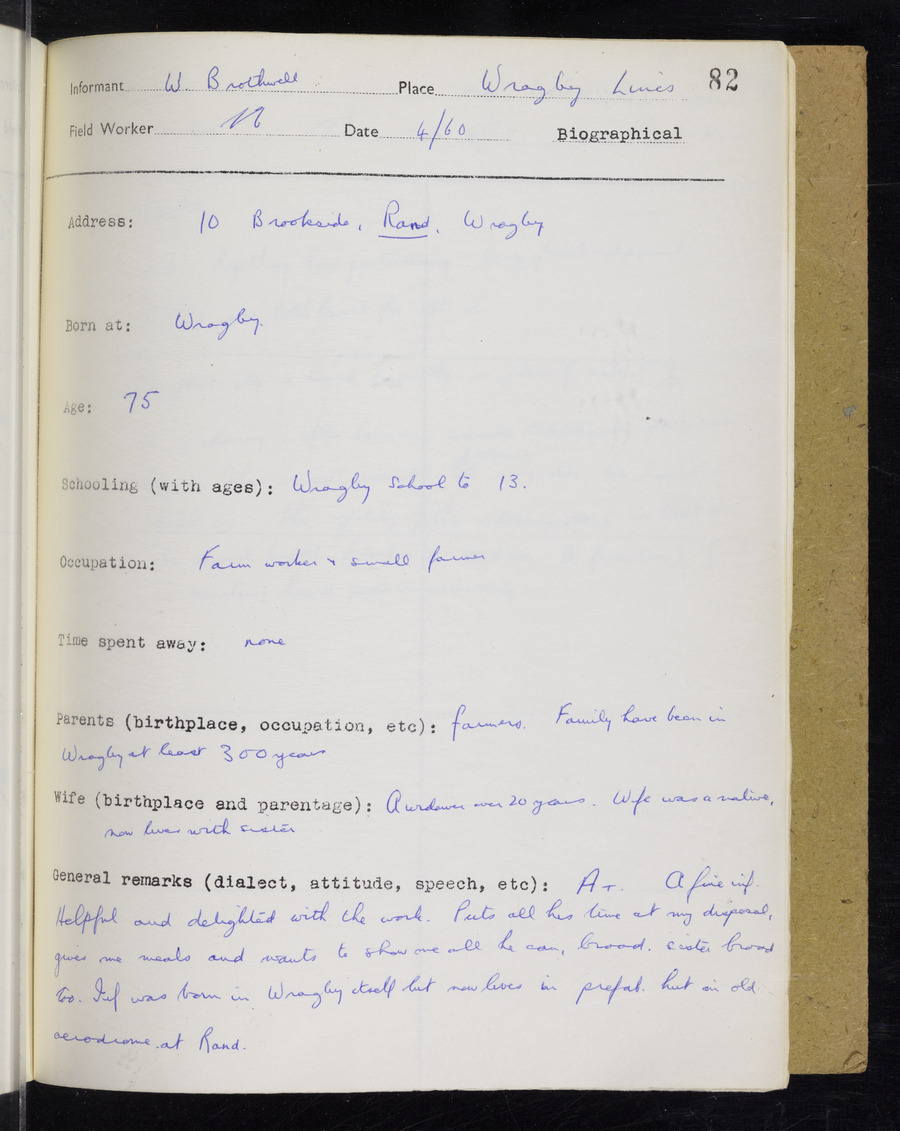 Informant W. Brothwell Place Wragby Lincs 82
Field Worker Date 4/60 Biographical
Address: 10 Brookside, Rand, Wragby
Born at: Wragby.
Age: 75
Schooling (with ages): Wragby School to 13.
Occupation: Farm worker & small farmer
Time spent away: none
Parents (birthplace, occupation, etc): farmers. Family have been in
Wragby at least 300 years
Wife (birthplace and parentage): A widower over 20 years. Wife was a native,
now lives with sister
General remarks (dialect, attitude, speech, etc): A+. A fine inf.
Helpful and delighted with the work. Puts all his time at my disposal,
gives me meals and wants to show me all he can, broad. sister broad
too. Inf was born in Wragby itself but now lives in prefab. hut on old
aerodrome at Rand.